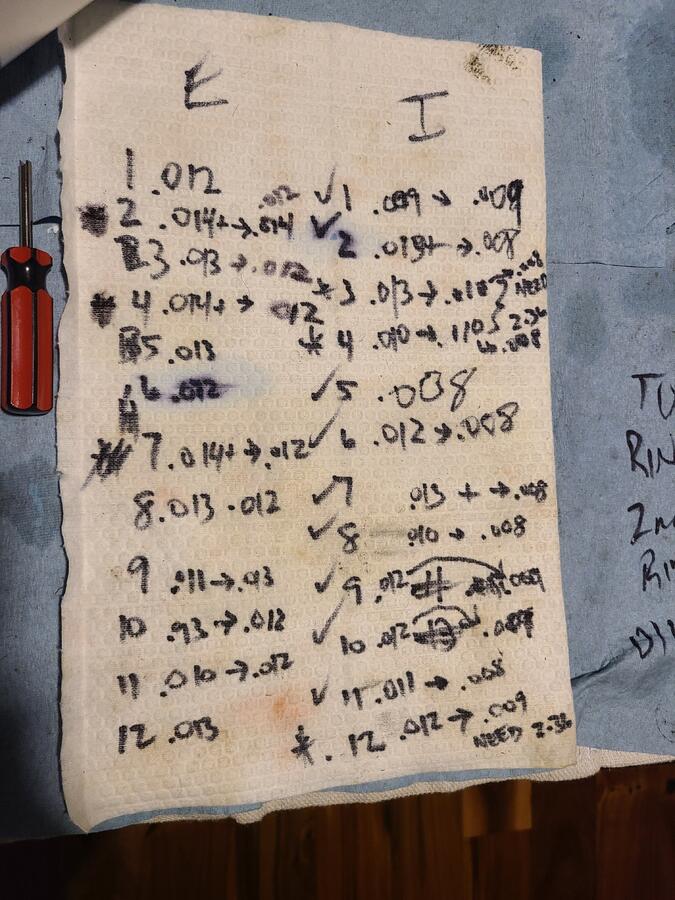 E
1 .012
.012
2 .014+→.014
3 .013→.012
4 .014+→ 012
5 .013
6 .012
7 .014+→.012
8 .013 .012
9 .011→.93
10 .93→.012
11 .010→.012
12 .013
I
✓ 1 .009→ .009
✓ 2 .013+ →.008
* 3 .013→ →.008 NEED
* 4 .010→ 2.36 ↳.008
✓ 5 .008
✓ 6 .012→.008
✓ 7 .013 + →.008
✓ 8 .010→ .008
✓ 9 .012 .009
✓ 10 .012 .009
✓ 11 .011→ .008
* . 12 .012→ .009
NEED 2.36
RIN